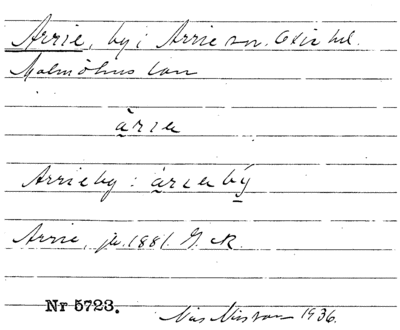 Arrie, by i Arrie sn. Oxie hd.
Malmöhus län
àrie
Arrieby: àriebý
Arrie, jb. 1881. G. eR.
Nr 5723.
Nils Nilsson 1936.